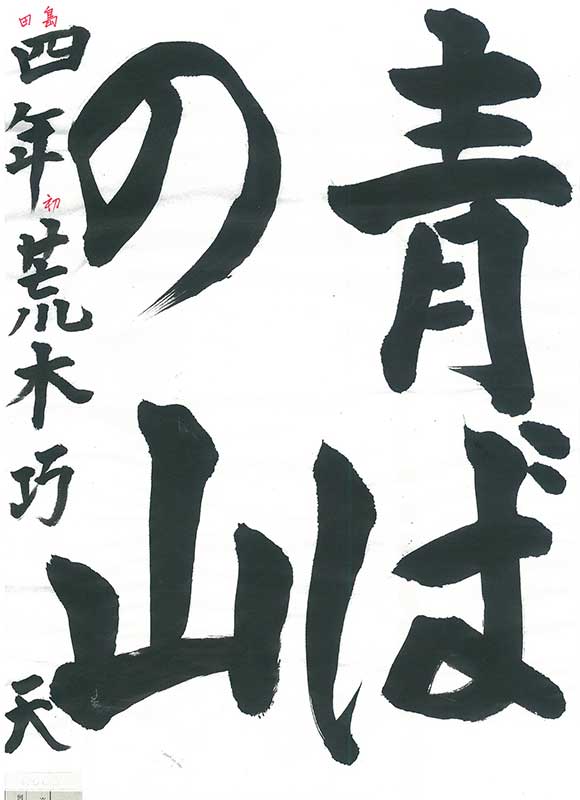 青ば
の山
田島
四年荒木巧 天
初